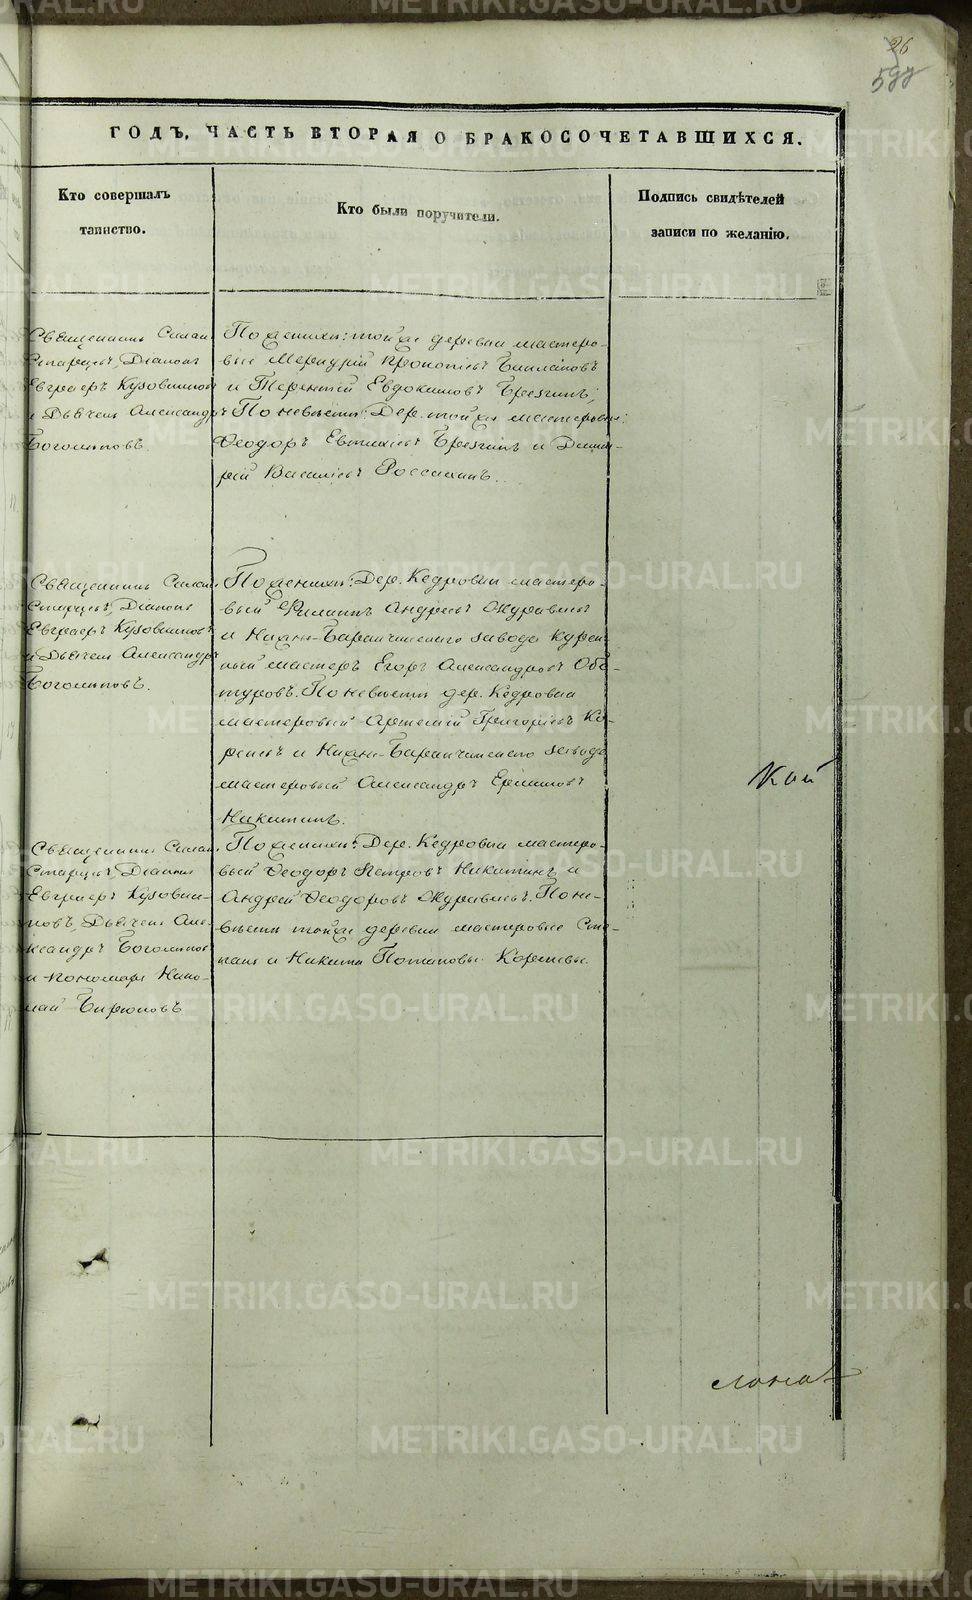 26
599
ГОДЪ, ЧАСТЬ ВТОРАЯ О БРАКОСОЧЕТАВШИХСЯ.
Кто совершалъ
таинство.
Кто были поручители.
Подпись свидѣтелей
записи по желанію.
Священникъ
Старцевъ, Діаконъ
Евграфъ Кузовниковъ
и Дьячекъ Александръ
Боголѣповъ.
По женихѣ: тойже деревни мастеро-
вые Меркурій Прокопіевъ
и Терентій Евдокимовъ
По невѣстѣ: Дер. тойже мастеровые:
Ѳеодоръ Евтихіевъ и Дмит-
рій Василіевъ
Священникъ
Старцевъ, Діаконъ
Евграфъ Кузовниковъ
и Дьячекъ Александръ
Боголѣповъ.
По женихѣ: Дер. Кедровки мастеро-
вый Филиппъ Андреевъ Журавлевъ
и Нижне-Баранчинскаго завода курен-
ный мастеръ Егоръ Александровъ Обе-
туровъ. По невѣстѣ дер. Кедровки
мастеровый Артемій Григорьевъ Ко-
ревъ и Нижне-Баранчинскаго завода
мастеровый Александръ
Никитинъ.
Священникъ
Старцевъ, Діаконъ
Евграфъ Кузовни-
ковъ, Дьячекъ Але-
ксандръ Боголѣповъ
и пономарь Нико-
лай Бирюковъ
По женихѣ: Дер. Кедровки мастеро-
вый Ѳеодоръ Петровъ Никитинъ и
Андрей Ѳеодоровъ Журавлевъ. По не-
вѣстѣ тойже деревни мастеровые Сте-
панъ и Никита Потаповы Коревы.
METRIKI.GASO-URAL.RU